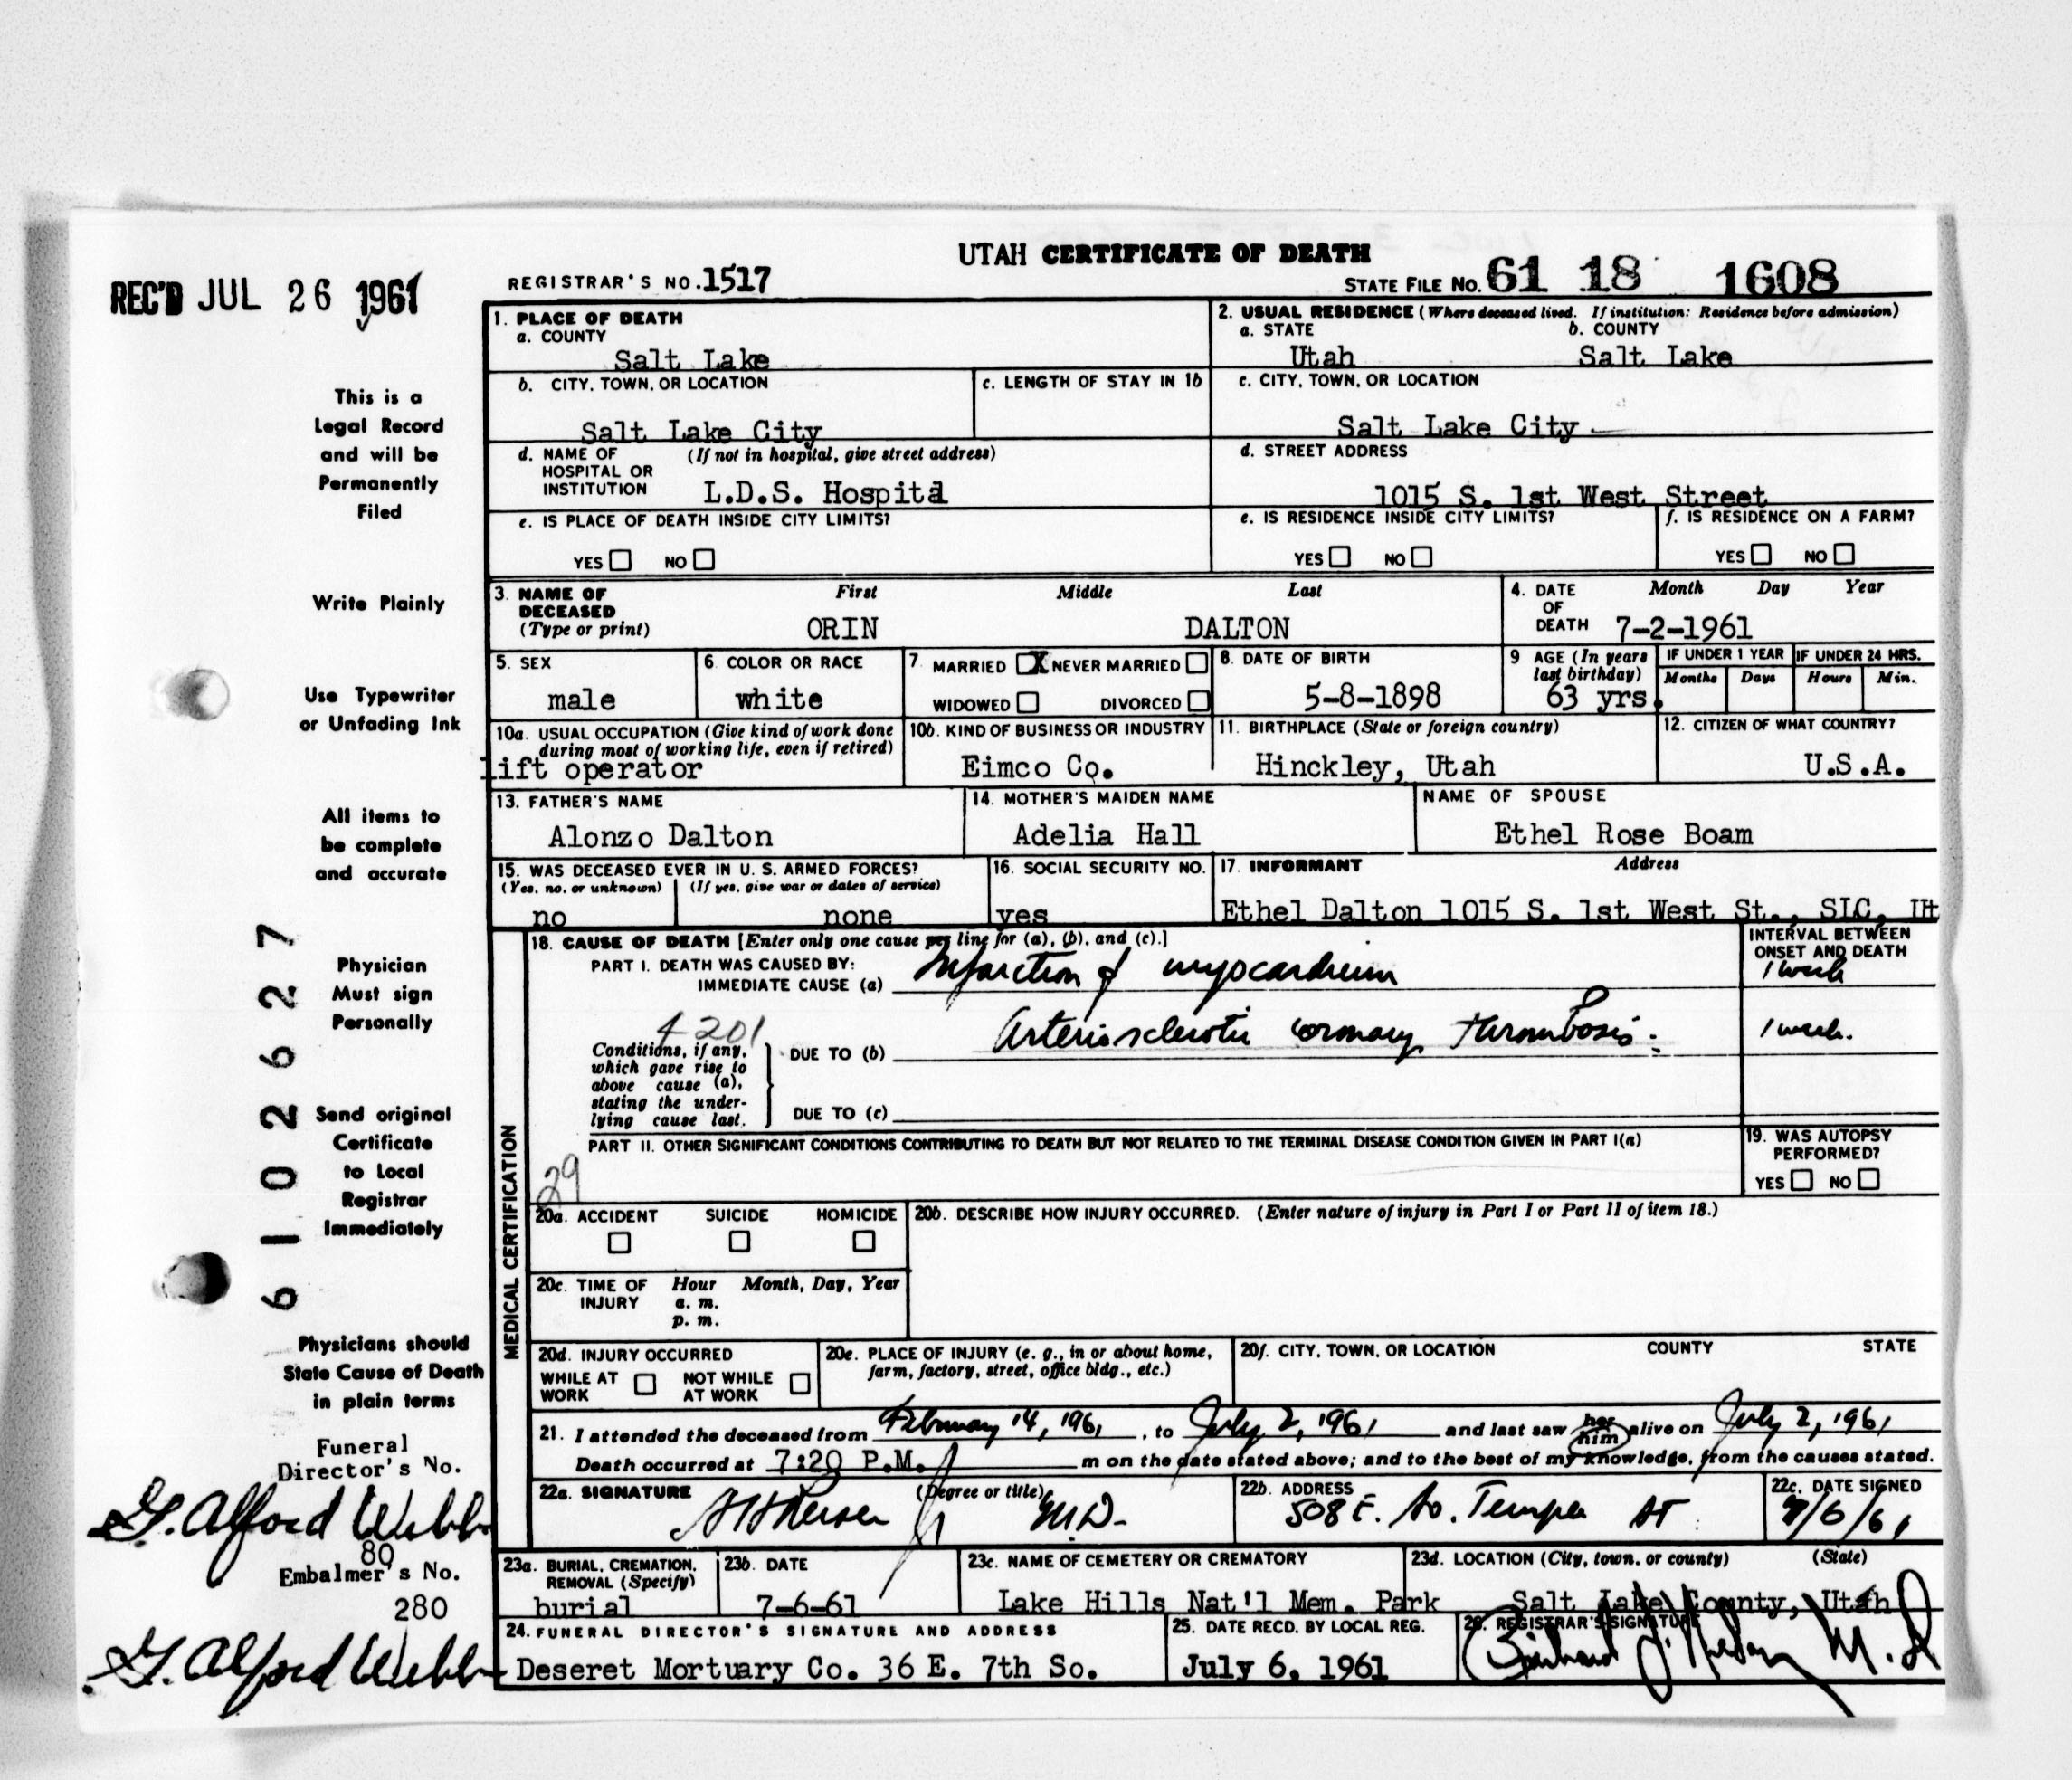 UTAH CERTIFICATE OF DEATH
REC'D JUL 26 1961
REGISTRAR'S NO. 1517
STATE FILE NO. 61 18 1608
1. PLACE OF DEATH
a. COUNTY
Salt Lake
2. USUAL RESIDENCE (Where deceased lived. If institution: Residence before admission)
a. STATE b. COUNTY
Utah Salt Lake
b. CITY, TOWN, OR LOCATION
Salt Lake City
c. LENGTH OF STAY IN 1b
c. CITY, TOWN, OR LOCATION
Salt Lake City
d. NAME OF (If not in hospital, give street address)
HOSPITAL OR
INSTITUTION L.D.S. Hospital
d. STREET ADDRESS
1015 S. 1st West Street
e. IS PLACE OF DEATH INSIDE CITY LIMITS?
YES NO
e. IS RESIDENCE INSIDE CITY LIMITS?
YES NO
f. IS RESIDENCE ON A FARM?
YES NO
3. NAME OF First Middle Last
DECEASED
(Type or print) ORIN DALTON
4. DATE Month Day Year
OF
DEATH 7-2-1961
5. SEX
male
6. COLOR OR RACE
white
7. MARRIED X NEVER MARRIED
WIDOWED DIVORCED
8. DATE OF BIRTH
5-8-1898
9 AGE (In years
last birthday)
63 yrs.
IF UNDER 1 YEAR
Months Days
IF UNDER 24 HRS.
Hours Min.
10a. USUAL OCCUPATION (Give kind of work done
during most of working life, even if retired)
lift operator
10b. KIND OF BUSINESS OR INDUSTRY
Eimco Co.
11. BIRTHPLACE (State or foreign country)
Hinckley, Utah
12. CITIZEN OF WHAT COUNTRY?
U.S.A.
13. FATHER'S NAME
Alonzo Dalton
14. MOTHER'S MAIDEN NAME
Adelia Hall
NAME OF SPOUSE
Ethel Rose Boam
15. WAS DECEASED EVER IN U. S. ARMED FORCES?
(Yes, no, or unknown) (If yes, give war or dates of service)
no none
16. SOCIAL SECURITY NO.
yes
17. INFORMANT Address
Ethel Dalton 1015 S. 1st West St., SLC, Ut
18. CAUSE OF DEATH [Enter only one cause per line for (a), (b), and (c).]
PART I. DEATH WAS CAUSED BY:
IMMEDIATE CAUSE (a) Infarction of myocardium
INTERVAL BETWEEN
ONSET AND DEATH
1 week
4201
Conditions, if any,
which gave rise to
above cause (a),
stating the under-
lying cause last.
DUE TO (b) Arteriosclerotic coronary thrombosis.
1 week.
DUE TO (c)
PART II. OTHER SIGNIFICANT CONDITIONS CONTRIBUTING TO DEATH BUT NOT RELATED TO THE TERMINAL DISEASE CONDITION GIVEN IN PART I(a)
29
19. WAS AUTOPSY
PERFORMED?
YES NO
MEDICAL CERTIFICATION
20a. ACCIDENT SUICIDE HOMICIDE
20b. DESCRIBE HOW INJURY OCCURRED. (Enter nature of injury in Part I or Part II of item 18.)
20c. TIME OF Hour Month, Day, Year
INJURY a. m.
p. m.
20d. INJURY OCCURRED
WHILE AT NOT WHILE
WORK AT WORK
20e. PLACE OF INJURY (e. g., in or about home,
farm, factory, street, office bldg., etc.)
20f. CITY, TOWN, OR LOCATION COUNTY STATE
21. I attended the deceased from February 14, 1961, to July 2, 1961 and last saw her him alive on July 2, 1961
Death occurred at 7:20 P.M. m on the date stated above; and to the best of my knowledge, from the causes stated.
22a. SIGNATURE (Degree or title)
M.D.
22b. ADDRESS
508 E. So. Temple St
22c. DATE SIGNED
7/6/61
23a. BURIAL, CREMATION,
REMOVAL (Specify)
burial
23b. DATE
7-6-61
23c. NAME OF CEMETERY OR CREMATORY
Lake Hills Nat'l Mem. Park
23d. LOCATION (City, town, or county) (State)
Salt Lake County, Utah
24. FUNERAL DIRECTOR'S SIGNATURE AND ADDRESS
Deseret Mortuary Co. 36 E. 7th So.
25. DATE RECD. BY LOCAL REG.
July 6, 1961
26. REGISTRAR'S SIGNATURE
M.D
This is a
Legal Record
and will be
Permanently
Filed
Write Plainly
Use Typewriter
or Unfading Ink
All items to
be complete
and accurate
Physician
Must sign
Personally
Send original
Certificate
to Local
Registrar
Immediately
Physicians should
State Cause of Death
in plain terms
6102627
Funeral
Director's No.
G. Alford Webb
80
Embalmer's No.
280
G. Alford Webb